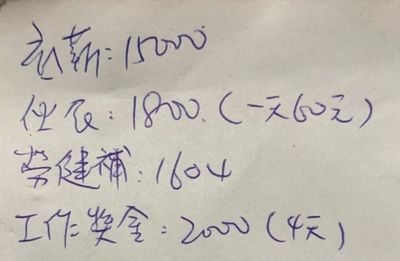 底薪:15000
伙食:1800.(一天60元)
勞健補:1604
工作獎金:2000(4天)